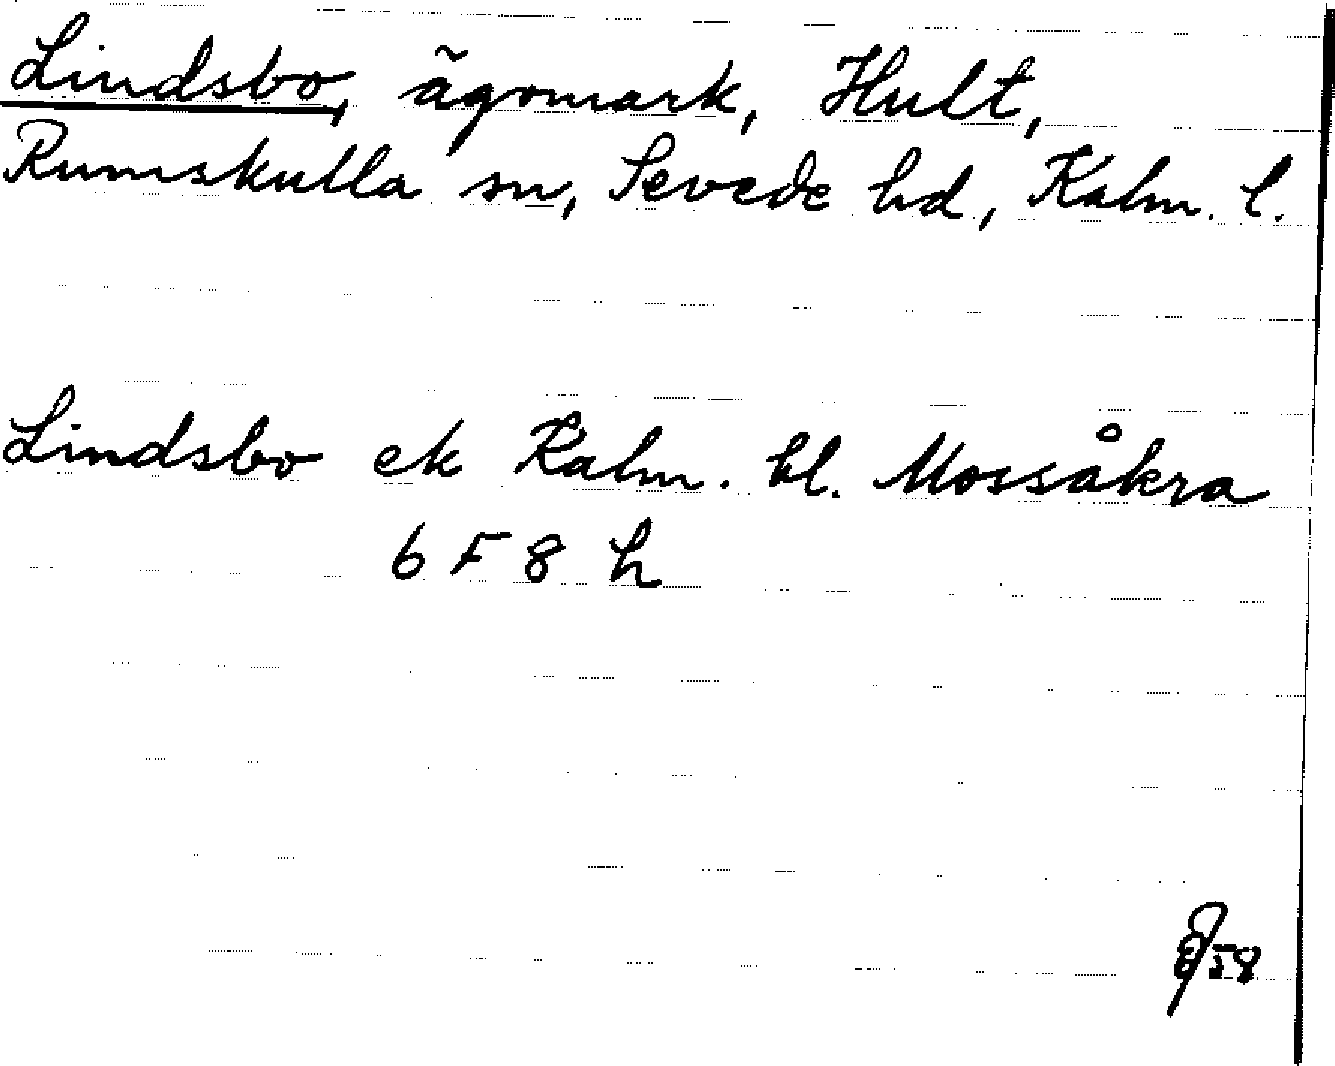 Lindsbo, ägomark, Hult,
Rumskulla sn, Sevede hd, Kalm. l.
Lindsbo ek Kalm. bl. Mossåkra
6 F 8 h
58